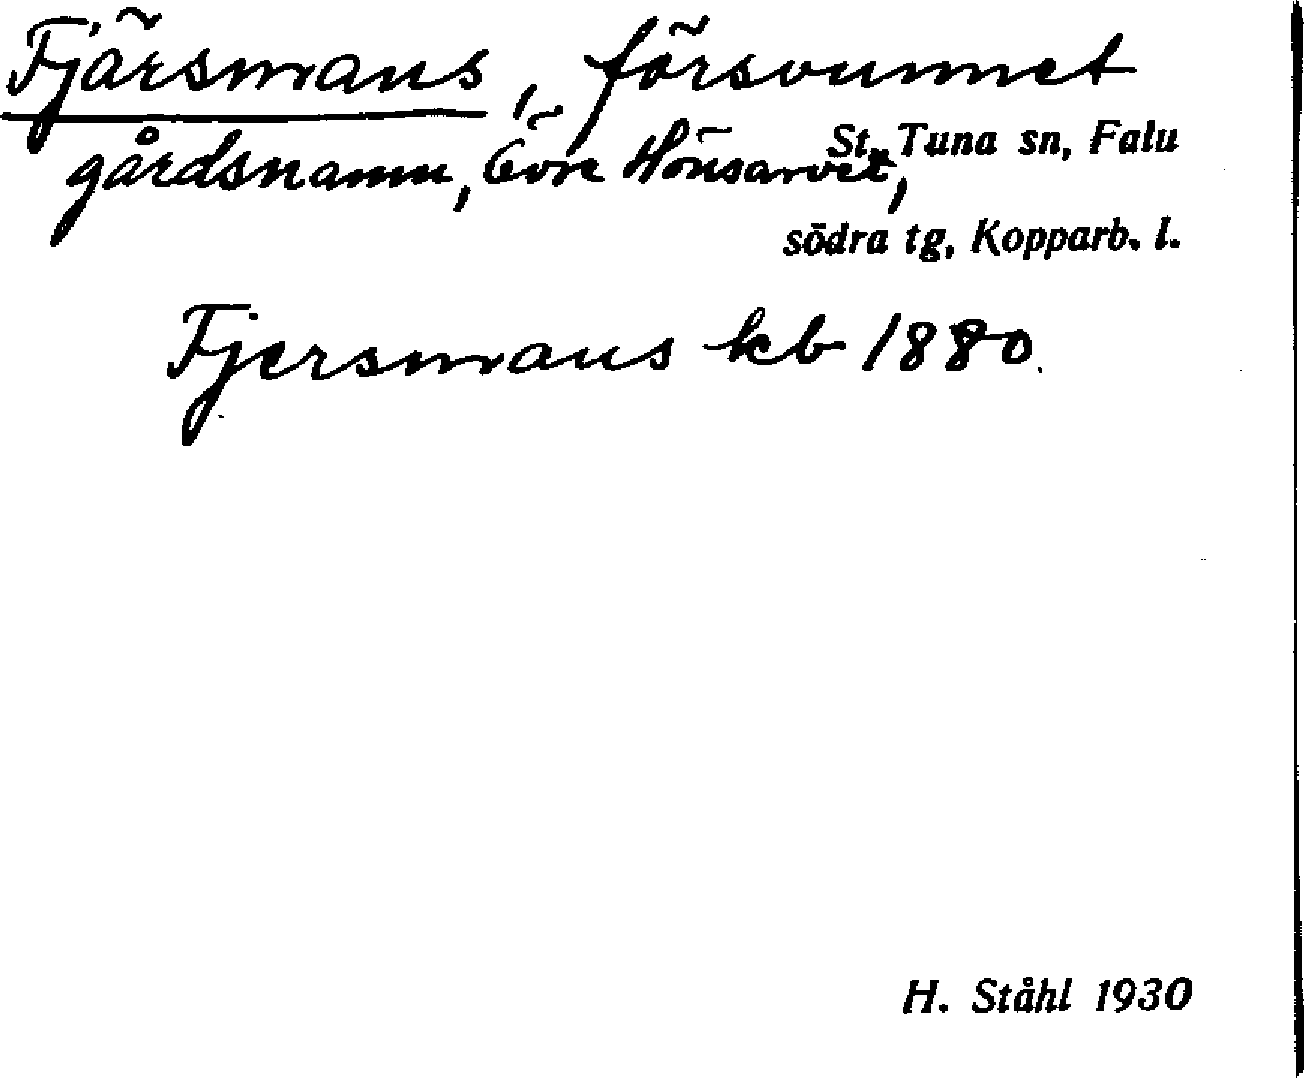 Fjärsmans, försvunnet
gårdsnamn, Övre Hönsarvet, St. Tuna sn, Falu
södra tg, Kopparb. l.
Fjersmans kb 1880.
H. Ståhl 1930